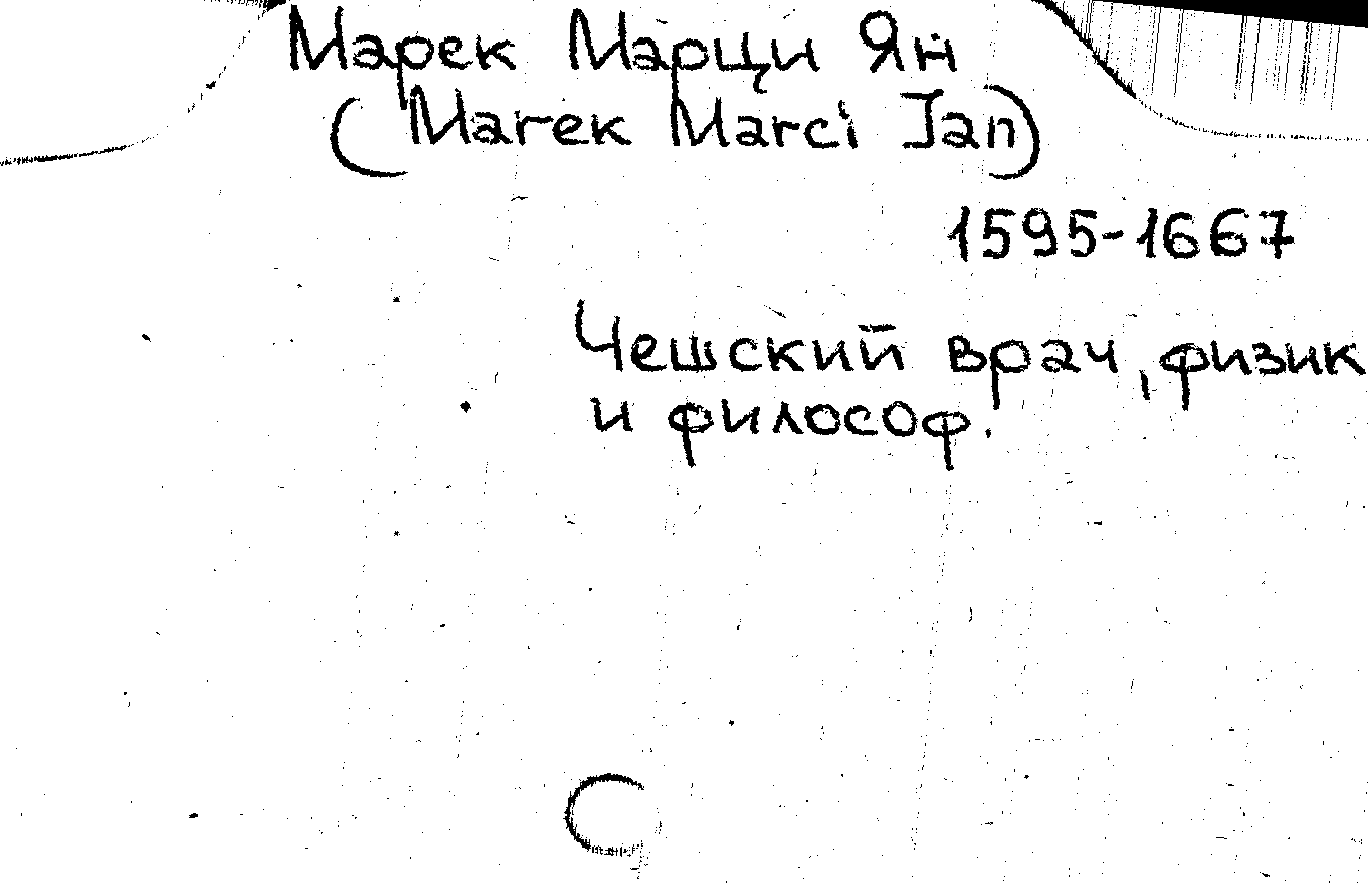 Марек Марци Ян
(Marek Marci Jan)
1595-1667
Чешский врач, физик
и философ.